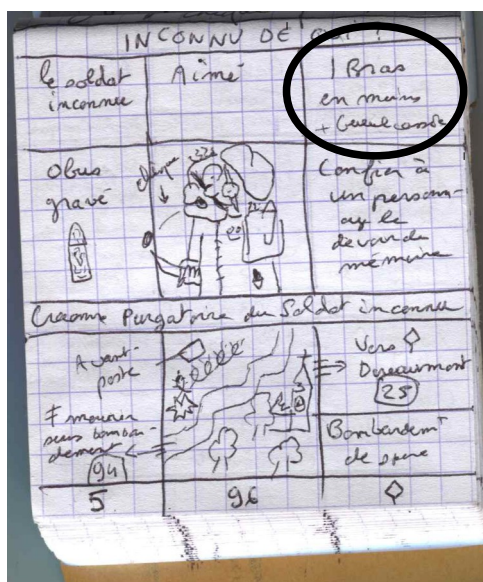 INCONNU DE QUI ?
le soldat
inconnu
Aimé
1 Bras
en moins
+ Gueule cassée
Obus
gravé
Confier à
un person-
age le
devoir de
mémoire
Craonne Purgatoire du Soldat inconnu
Avant-
poste
≠ mourir
sous bombar-
dement
94
Vers ◊
25
Bombardemt
de
5
96
◊